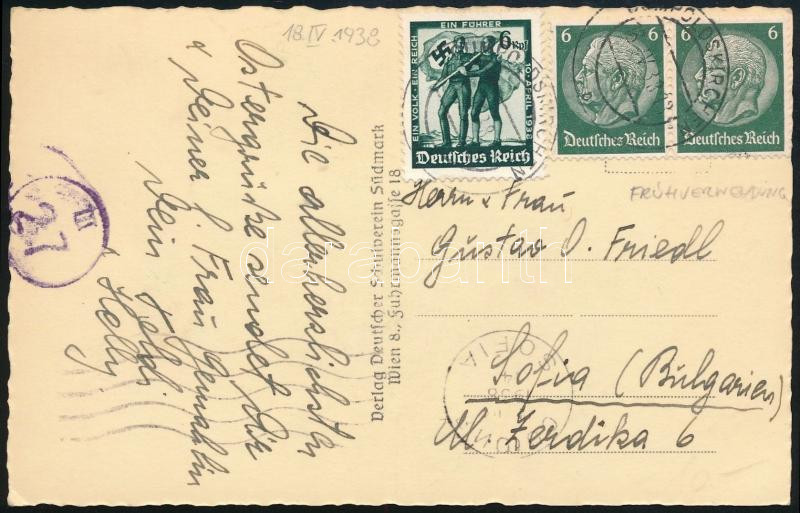 18.IV.1938
EIN FÜHRER
EIN VOLK · EIN REICH
10. APRIL 1938
6 Rpf
Deutsches Reich
6 6
Deutsches Reich
6 6
Deutsches Reich
FRÜHVERWENDUNG
Die allerherzlichsten
Ostergrüße sendet Dir
u Deiner l. Frau Gemahlin
Dein
Verlag Deutscher Schulverein Südmark
Wien 8., Fuhrmannsgasse 18
Herrn u Frau
Gustav O. Friedl
Sofia (Bulgarien)
Ul. Zerdika 6
SOFIA
III
27
darabanth